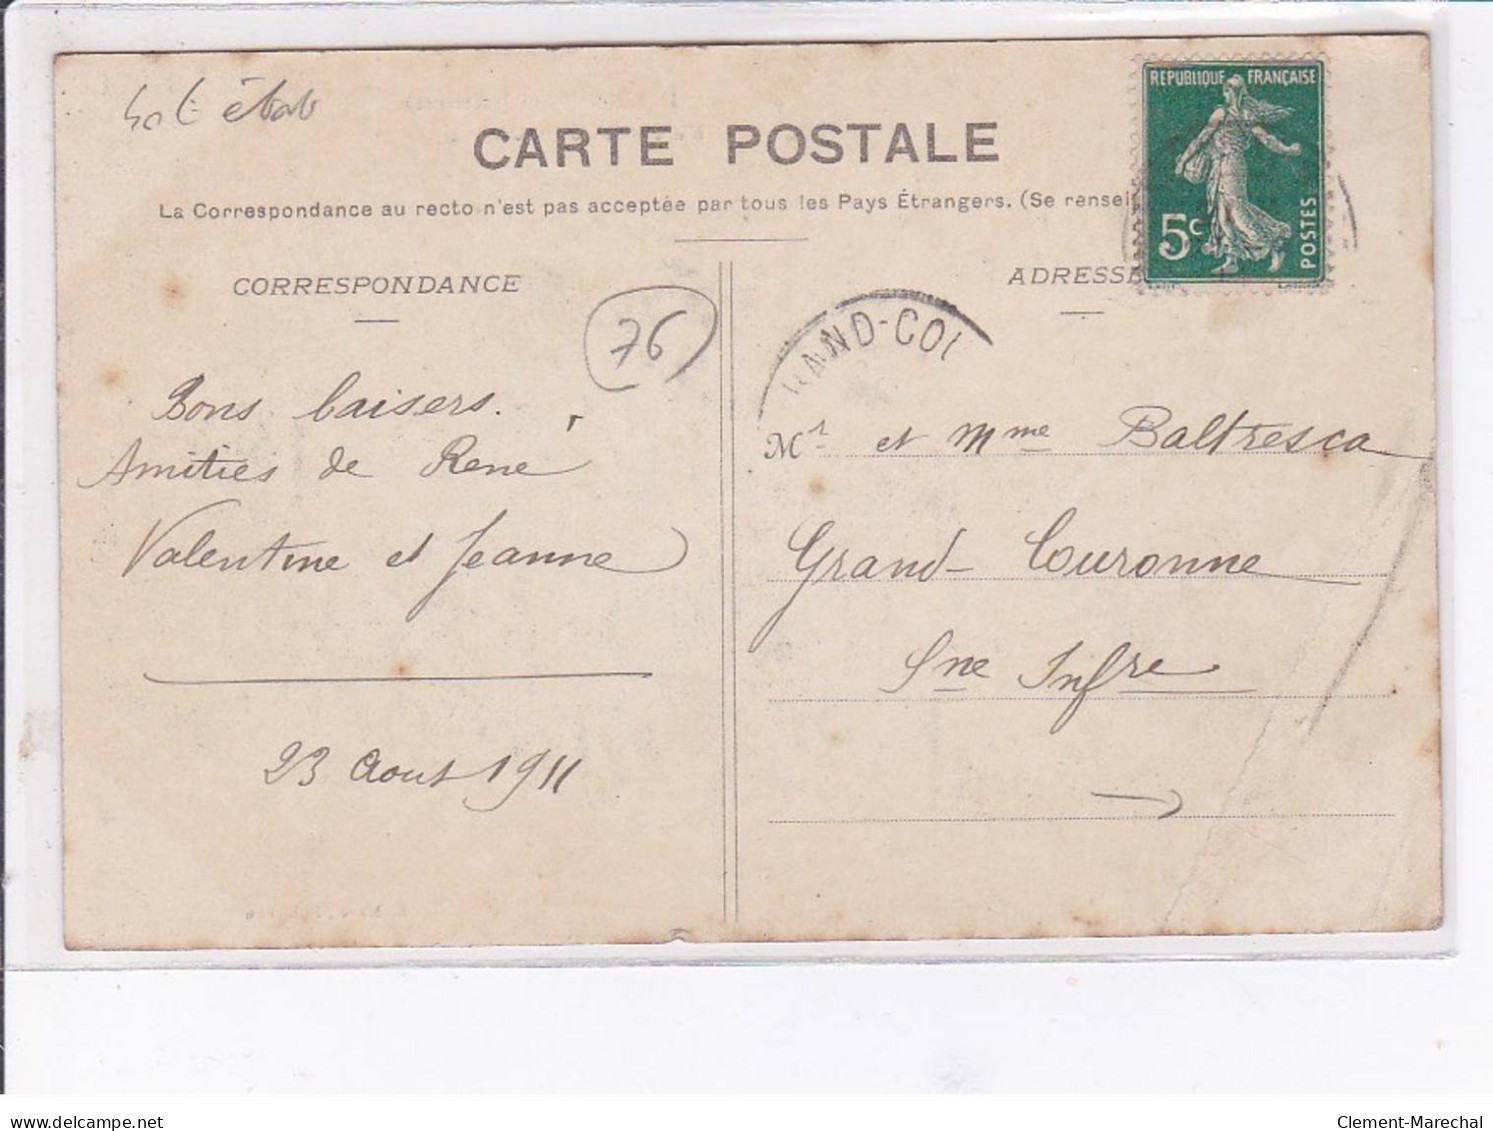 CARTE POSTALE
REPUBLIQUE FRANÇAISE
5c
POSTES
La Correspondance au recto n'est pas acceptée par tous les Pays Étrangers. (Se rensei
CORRESPONDANCE
ADRESSE
76
RAND-COU
Bons baisers.
Amitiés de René
Valentine et Jeanne
23 Aout 1911
Mr et Mme Baltresca
Grand-Couronne
Sne Infre
delcampe.net
Clement-Marechal